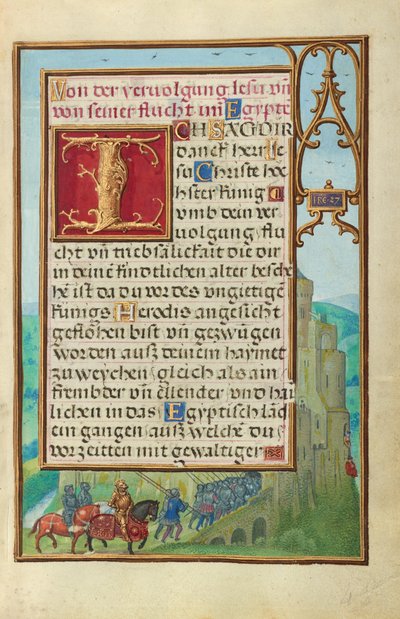 Von der vervolgung Iesu vn̄
von seiner flucht inn Egypte
ICH SAG DIR
danck herr Ie
su Christe hoch
ster kunig
vmb dein ver
uolgung flu
cht vn̄ triebsalickait die dir
in deinē kindtlichen alter besche
hē ist da du vor des vngietigē
kunigs Herodis angesicht
geflohen bist vn̄ gezwūgen
worden auß deinem haymet
zu weychen gleich als ain
frembder vn̄ ellender vnd hai
lichen in das Egyptisch lād
ein gangen auß welchē du
vor zeitten mit gewaltiger